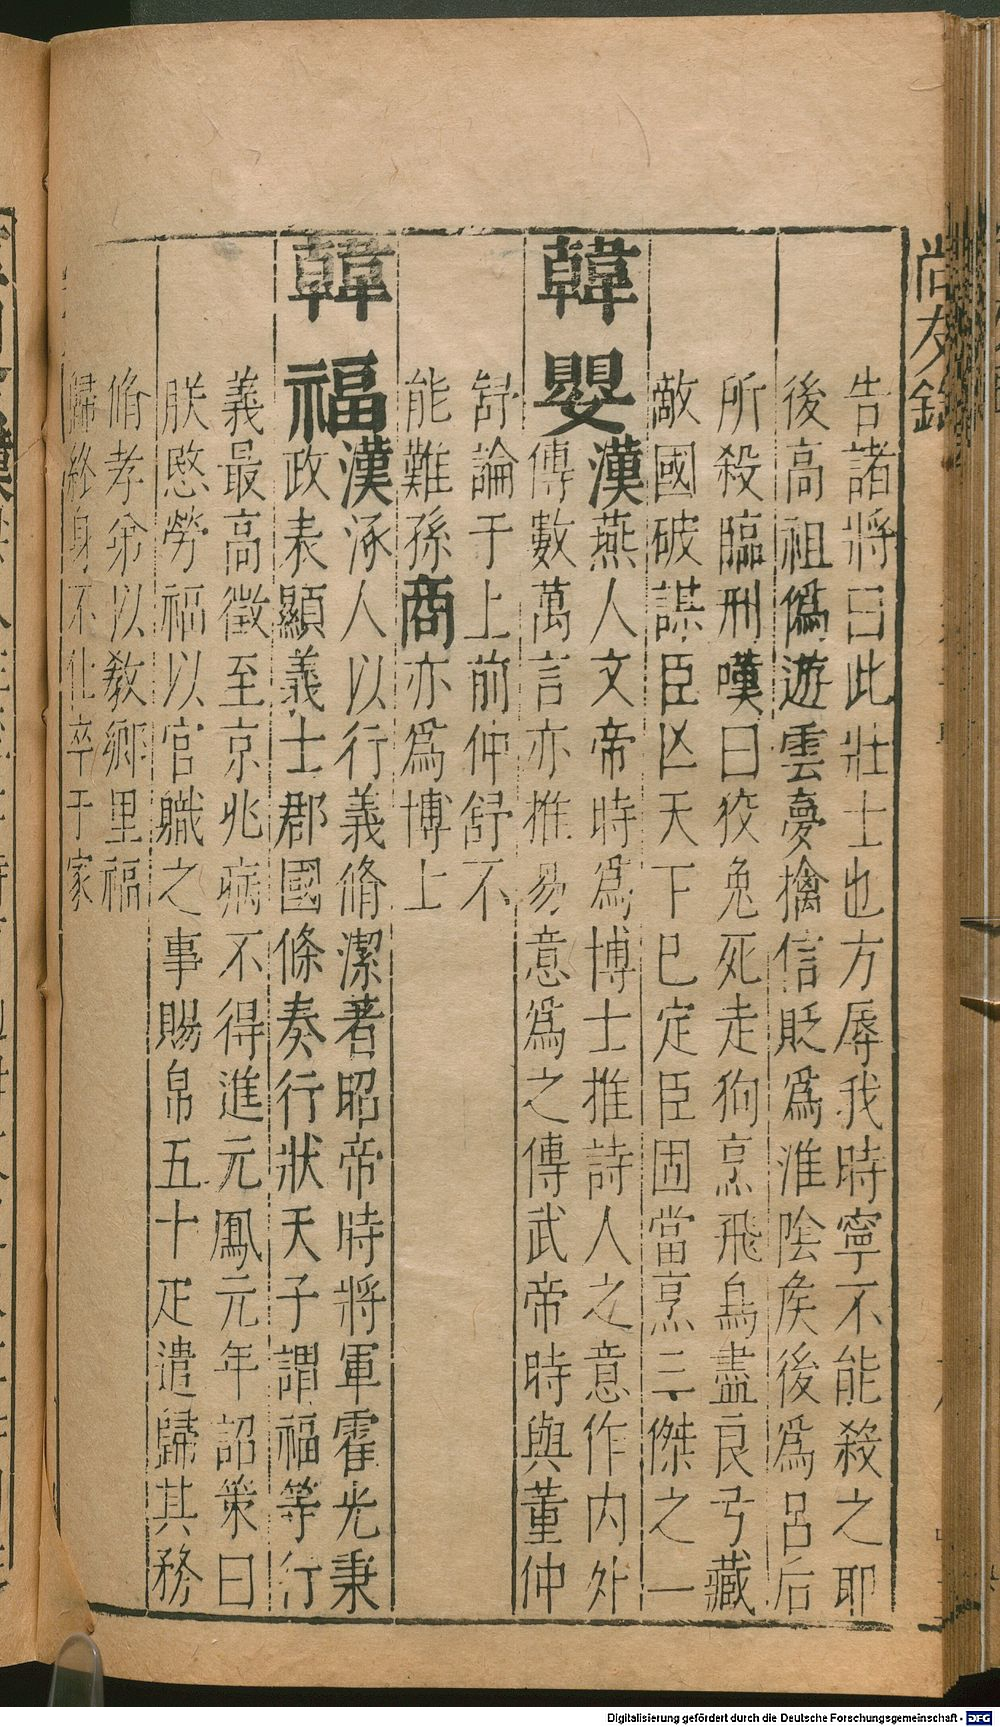 尚友錄
告諸將曰此壯士也方辱我時寧不能殺之耶
後高祖僞遊雲夢擒信貶爲淮陰矦後爲呂后
所殺臨刑嘆曰狡兔死走狗烹飛鳥盡良弓藏
敵國破謀臣亾天下已定臣固當烹三傑之一
韓嬰
漢燕人文帝時爲博士推詩人之意作内外
傳數萬言亦推易意爲之傳武帝時與董仲
舒論于上前仲舒不
能難孫商亦爲博士
韓福
漢涿人以行義脩潔著昭帝時將軍霍光秉
政表顯義士郡國條奏行狀天子謂福等行
義最高徵至京兆病不得進元鳳元年詔策曰
朕愍勞福以官職之事賜帛五十疋遣歸其務
脩孝弟以敎鄉里福
歸終身不仕卒于家
Digitalisierung gefördert durch die Deutsche Forschungsgemeinschaft - DFG